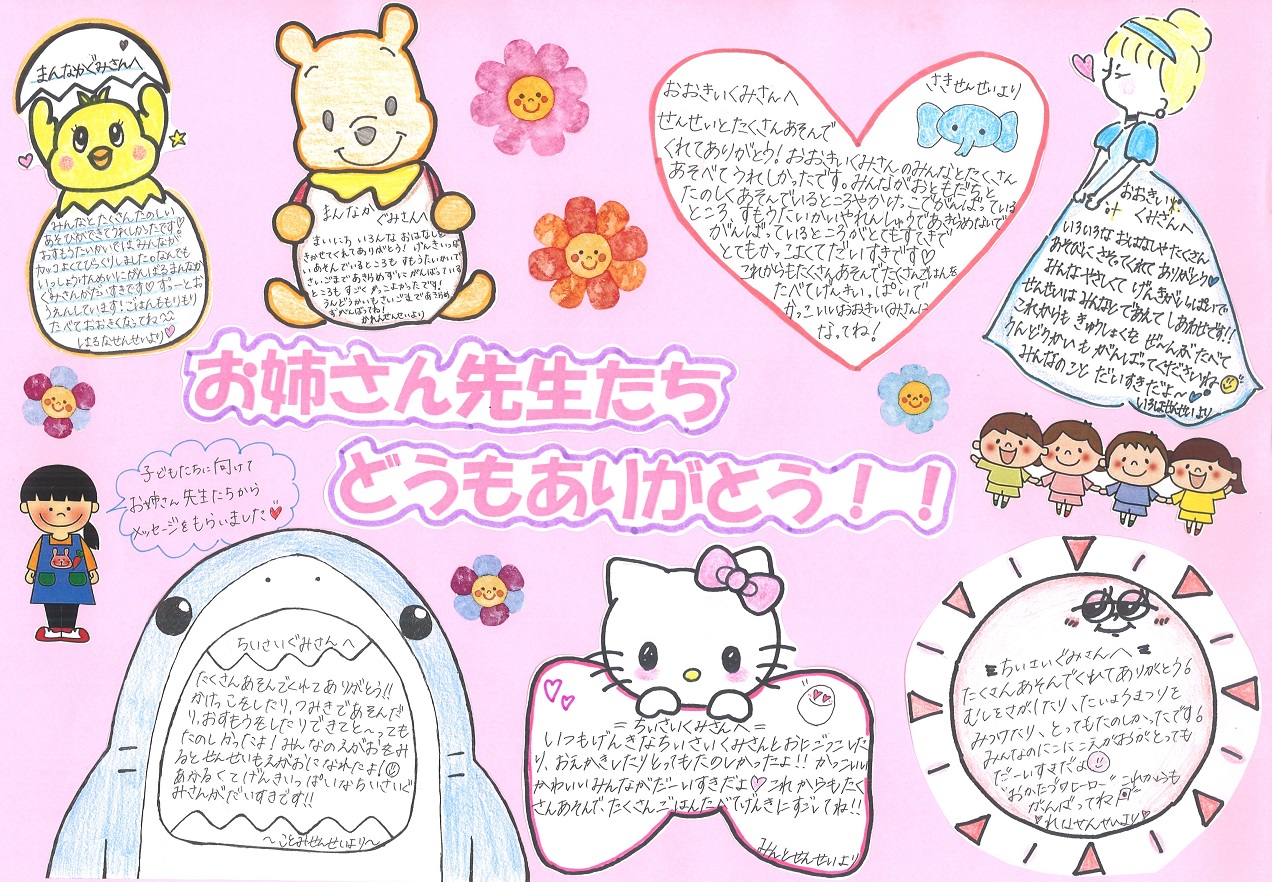 まんなかぐみさんへ
みんなとたくさんたのしい
あそびができてうれしかったです♡
おすもうたいかいではみんなが
カッコよくてびっくりしました。なんでも
いっしょうけんめいにがんばるまんなか
ぐみさんがだいすきです♡ずーっとお
うえんしています!ごはんももりもり
たべておおきくなってね^^
はるなせんせいより♡
まんなかぐみさんへ
まいにちいろんなおはなしを
きかせてくれてありがとう!げんきいっぱ
いあそんでいるところもすもうたいかいで
さいごまであきらめずにがんばっている
ところもすごくかっこよかったです!
うんどうかいもさいごまであきらめ
ずがんばってね!
かれんせんせいより
おおきいくみさんへ
さきせんせいより
せんせいとたくさんあそんで
くれてありがとう!おおきいくみさんのみんなとたくさん
あそべてうれしかったです。みんながおともだちと
たのしくあそんでいるところやかけっこでがんばっている
ところ、すもうたいかいやれんしゅうであきらめないで
がんばっているところがとてもすてきで
とてもかっこよくてだいすきです♡
これからもたくさんあそんでたくさんごはんを
たべてげんきいっぱいで
かっこいいおおきいくみさんに
なってね!
おおきい
くみさんへ
いろいろなおはなしやたくさん
あそびにさそってくれてありがとう♡
みんなやさしくてげんきがいっぱいで
せんせいはみんなとであえてしあわせです!!
これからもきゅうしょくもぜ〜んぶたべて
うんどうかいもがんばってくださいね
みんなのことだいすきだよ〜
いろはせんせいより
お姉さん先生たち
どうもありがとう!!
子どもたちに向けて
お姉さん先生たちから
メッセージをもらいました♥
ちいさいぐみさんへ
たくさんあそんでくれてありがとう!!
かけっこをしたり、つみきであそんだ
り、おすもうをしたりできてと〜っても
たのしかったよ!みんなのえがおをみ
るとせんせいもえがおになれたよ!
あかるくてげんきいっぱいなちいさいぐ
みさんがだいすきです!!
〜ことみせんせいより〜
=ちいさいくみさんへ=
いつもげんきなちいさいくみさんとおにごっこした
り、おえかきしたりとってもたのしかったよ!!かっこいい
かわいいみんながだーいすきだよ♡これからもたく
さんあそんで、たくさんごはんたべてげんきにすごしてね!!
みんとせんせいより
ちいさいぐみさんへ
たくさんあそんでくれてありがとう。
むしをさがしたり、だいようむしを
みつけたり、とってもたのしかったです。
みんなのにこにこえがおがとっても
だーいすきだよ
"おかたづけヒーロー"これからも
がんばってね
せんせいより♡